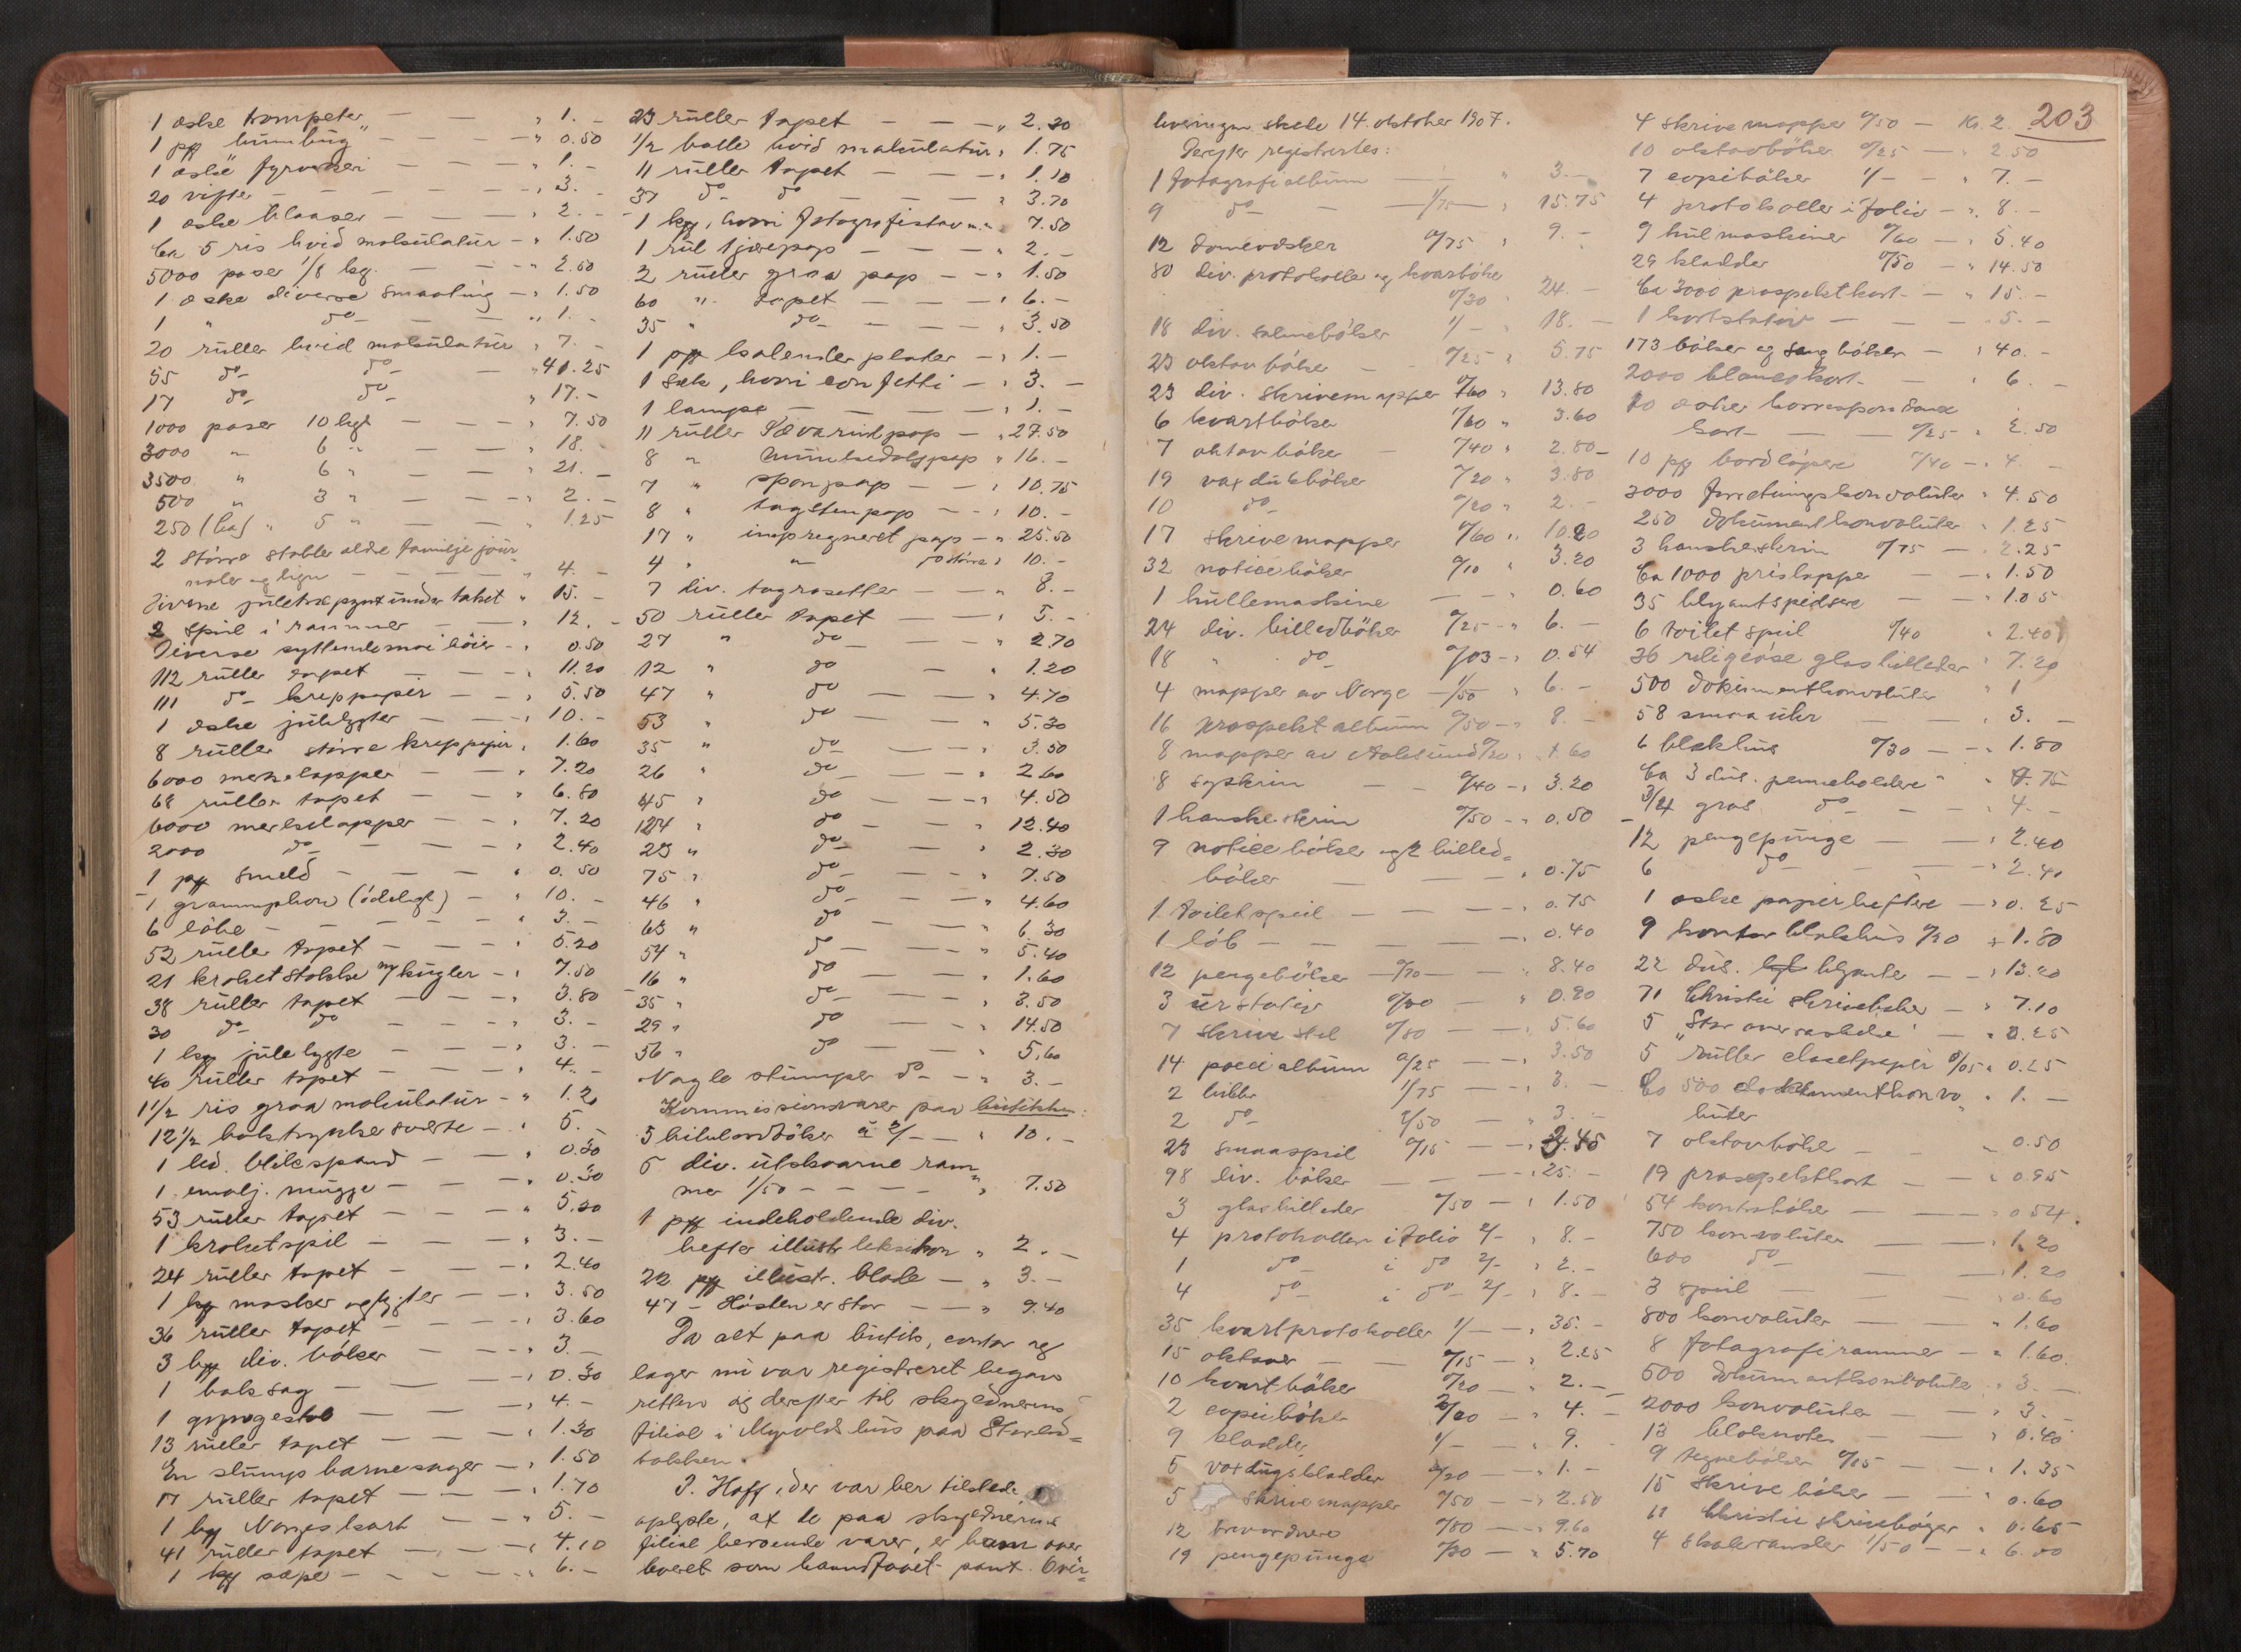 1 æske trompeter — — „ 1. –
1 pk humbug — — „ 0.50
1 æske fyrvækeri — „ 1. –
20 vifter — — — „ 3. –
1 æske blaaser — — „ 2. –
Ca 5 ris hvid makulatür – „ 1.50
5000 poser 1/8 kg. — — „ 2.50
1 æske diverse smaating – „ 1.50
1 „ do – — — „ 1. –
20 rüller hvid makülatür „ 7. –
55 do – do – — „ 41.25
17 do – do – „ 17. –
1000 poser 10 kgs — — „ 7.50
3000 „ 6 „ — — „ 18. –
3500 „ 6 „ — — „ 21. –
500 „ 3 „ — — „ 2. –
250 (ca) „ 5 „ — — „ 1.25
2 större stabler ældre familje jour-
naler og lign — — — „ 4. –
Diverse juletræpynt under taket „ 15. –
2 speil i rammer — — „ 12. –
Diverse syttendemai böier – „ 0.50
112 rüller tapet — — „ 11.20
111 do – kreppapir — — „ 5.50
1 æske julelygter — — „ 10. –
8 rüller större kreppapir „ 1.60
6000 merkelapper — — „ 7.20
68 rüller tapet — — „ 6.80
6000 merkelapper — — „ 7.20
2000 do – — — „ 2.40
1 pk smeld — — — „ 0.50
1 grammophon (ödelagt) — „ 10. –
6 löbe – — — — „ 3. –
52 rüller tapet — — „ 5.20
21 kroketstokke og kügler – „ 7.50
38 rüller tapet — — „ 3.80
30 do – do — — „ 3. –
1 kg julelygte — — „ 3. –
40 rüller tapet — — „ 4. –
1 1/2 ris graa makülatür – „ 1.20
12 1/2 boktrykkersværte — „ 5. –
1 led. blikspand — — „ 0.30
1 emalj. mügge — — „ 0.30
53 rüller tapet — — „ 5.30
1 kroketspil — — — „ 3. –
24 rüller tapet — — „ 2.40
1 kg masker og lygter — — „ 3.50
36 rüller tapet — — „ 3.60
3 kg div. böker — — „ 3. –
1 baksag — — — „ 0.30
1 gyngestol — — „ 4. –
13 rüller tapet — — „ 1.30
En slump barnesager — „ 1.50
17 rüller tapet — — „ 1.70
1 kg Norgeskart — — „ 5. –
41 rüller tapet — — „ 4.10
1 kg sæpe – — — „ 6. –
23 rüller tapet — — — „ 2.30
1/2 balle hvid makülatür „ 1.75
11 rüller tapet — — „ 1.10
37 do do — — „ 3.70
1 kg, hvori fotografistav m.m. 7.50
1 rül tjærepap — — „ 2. –
2 rüller graa pap — — „ 1.50
60 „ tapet — — — „ 6. –
35 „ do – — — — „ 3.50
1 pk kalenderplater – „ 1. –
1 sæk, hvori confetti — „ 3. –
1 lampe — — — „ 1. –
11 rüller pap — „ 27.50
8 „ Münkedalspap „ 16. –
7 „ sponpap — — „ 10.75
8 „ tagstenpap — — „ 10. –
17 „ impregneret pap – „ 25.50
4 „ „ do större „ 10. –
7 div. tagrosetter — — „ 8. –
50 rüller tapet — — „ 5. –
27 „ do — — „ 2.70
12 „ do — „ 1.20
47 „ do — — „ 4.70
53 „ do — — „ 5.30
35 „ do — — „ 3.50
26 „ do — — „ 2.60
45 „ do — — „ 4.50
124 „ do — — „ 12.40
23 „ do — — „ 2.30
75 „ do — — „ 7.50
46 „ do — — „ 4.60
63 „ do — — „ 6.30
54 „ do — — „ 5.40
16 „ do — — „ 1.60
35 „ do — — „ 3.50
29 „ do — — „ 14.50
56 „ do — — „ 5.60
Nogle stumper do – — „ 3. –
Kommissionsvarer paa butikken:
5 bibelordböker à 2/– — „ 10. –
5 div. utskaarne ram„
mer 1/50 – — — — „ 7.50
1 pk indeholdende div.
hefter illustr leksikon „ 2. –
22 pk illustr. blade — „ 3. –
47 – Hösten er stor — — „ 9.40
Da alt paa butik, contor og
lager nu var registreret begav
retten sig derefter til skyldnerens
filial i Myvolds hus paa Storled=
bakken.
P. Hoff, der var her tilstede,
oplyste, at de paa skyldnerens
filial beroende varer, er ham over
leveret som haandfaaet pant. Over=
leveringen skede 14. oktober 1907.
Derefter registrertes:
1 fotografialbum — — „ 3. –
9 do – — 1/75 — „ 15.75
12 0/75 „ 9. –
80 div. protokoller og kvartböker
0/30 „ 24. –
18 div. salmeböker 1/– „ 18. –
23 oktavböker — 0/25 „ 5.75
23 div. skrivemapper 0/60 „ 13.80
6 kvartböker 0/60 „ 3.60
7 oktavböker – 0/40 „ 2.80 –
19 voxdükböker 0/20 „ 3.80
10 do – 0/20 „ 2. –
17 skrivemapper 0/60 „ 10.20
32 noticeböker 0/10 „ 3.20
1 hüllemaskine — — „ 0.60
24 div. billedböker 0/25 – „ 6. –
18 „ do – 0/03 – „ 0.54
4 mapper av Norge – 1/50 „ 6. –
16 prospektalbum 0/50 – „ 8. –
8 mapper av Aalesund 0/20 „ 1.60
8 syskrin — 0/40 – „ 3.20
1 hanskeskrin 0/50 – „ 0.50
9 noticeböker og 2 billed=
böker — — — „ 0.75
1 toiletspeil — — — „ 0.75
1 löb – — — — „ 0.40
12 pengeböker – 0/70 — — „ 8.40
3 ürstativ 0/30 — „ 0.90
7 skrivestel 0/80 — — „ 5.60
14 poesialbum 0/25 — — „ 3.50
2 bibler 1/75 — — „ 3. –
2 do – 1/50 — „ 3. –
23 smaaspeil 0/15 — — „ 3.45
98 div. böker — — — „ 25. –
3 glasbilleder 0/50 — „ 1.50
4 protokoller i folio 2/– „ 8. –
1 do – i do 2/– „ 2. –
4 do – i do – 2/– „ 8. –
35 kvartprotokoller 1/– — „ 35. –
15 oktaver — — 0/15 — „ 2.25
10 kvartböker 0/20 — „ 2. –
2 copieböker 2/00 — „ 4. –
9 kladder 1/– — „ 9. –
5 voxdugskladder 0/20 — „ 1. –
5 skrivemapper 0/50 — „ 2.50
12 brevordnere 0/80 — „ 9.60
19 pengepünge 0/30 — „ 5.70
203
4 skrivemapper 0/50 — Kr. 2.
10 oktavböker 0/25 — „ 2.50
7 copiböker 1/– — „ 7. –
4 protokoller i folio – „ 8. –
9 hülmaskiner 0/60 — „ 5.40
29 kladder 0/50 — „ 14.50
Ca 3000 prospektkort – — „ 15. –
1 kortstativ — — — 5. –
173 böker og sangböker — „ 40. –
2000 blancokort – — „ 6. –
10 æsker korrespondance
kort — — 0/25 „ 2.50
10 pk bordlöpere 0/40 – „ 4. –
3000 forretningskonvolüter „ 4.50
250 dokümentkonvolüter „ 1.25
3 hanskeskrin 0/75 — „ 2.25
Ca 1000 prislapper — — „ 1.50
35 blyantspidsere — — „ 1.05
6 toiletspeil 0/40 „ 2.40
36 religiöse glasbilleder „ 7.20
500 dokümentkonvolüter „ 1
58 smaa ühr — — „ 3. –
6 blækhus 0/30 — „ 1.80
Ca 3 düs. penneholdere „ 0.75
3/4 gros do – — — „ 4. –
12 pengepünge — — „ 2.40
6 do – — „ 2.40
1 æske papirheftere — „ 0.25
9 kontorblækhus 0/20 „ 1.80
22 düs. blyanter — — „ 13.20
71 Christie skriveböker — „ 7.10
5 „Stor overraskelse" — „ 0.25
5 rüller closetpapir 0/05 „ 0.25
Ca 500 dokumentkonvo„ „ 1. –
lüter
7 oktavböke — — 0.50
19 prospektkort — — „ 0.95
54 kontraböker — — „ 0.54.
750 konvolüter — — 1.20
600 do – — — 1.20
3 speil — — — 0.60
800 konvolüter — — „ 1.60
8 fotografirammer — „ 1.60.
500 dokümentkonvolüte „ 3. –
2000 konvolüter — — „ 3. –
13 bloknoter — — „ 0.40
9 tegneböker 0/15 — — „ 1.35
15 skriveböker — — „ 0.60
11 Christie skriveböger „ 0.65
4 skoleransler 1/50 — — „ 6.00